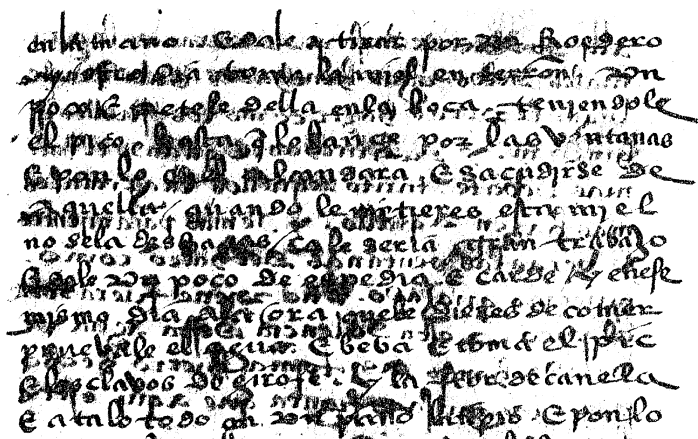 en la mano E dale a tirar por un Roedero
otro dia toma la miel en terron un
poca E metese della en la boca teniendole
el pico hasta q le lance por las ventanas
E ponlo en el alcandara E sacudirse de
aquella quando le metieres esta miel
no dela deshagas ca le seria gran trabajo
E dale un poco de espedia E carne E en ese
mismo dia a la ora que le dieres de comer
pruevale el agua E beba E toma el
E los clavos de girofe E la flor de canela
E atalo todo en un paño limpio E ponlo